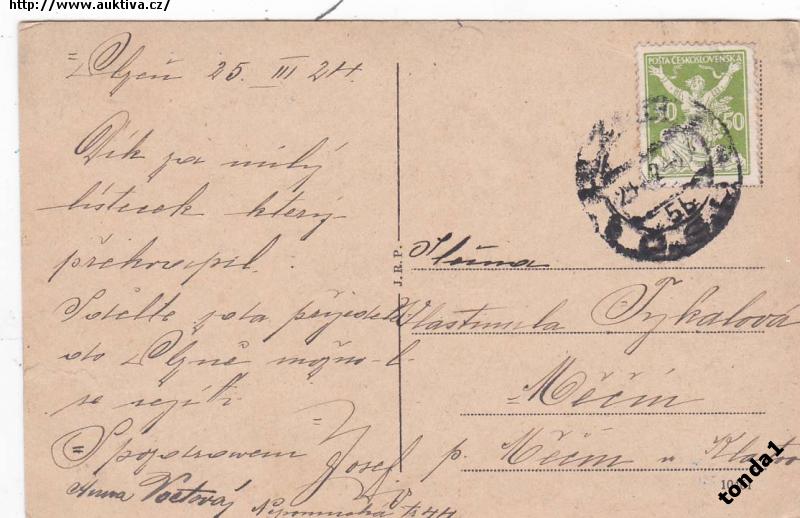 http://www.auktiva.cz/
Plzeň 25. III 24.
Dík za milý
lísteček který
překvapil.
Sdělte zda přijedete
do Plzně možno-li
se sejíti
S pozdravem Josef
Anna Voctová
Nepomucká tř. 44
J. R. P.
POŠTA ČESKOSLOVENSKÁ
50 50
Slečna
Vlastimila Tykalová
Měčín
p. Měčín u Klatov
tonda1